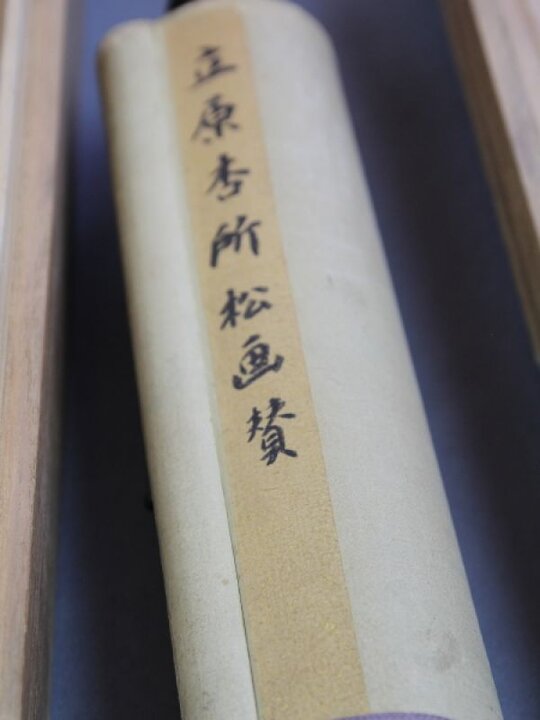 立原杏所松画賛